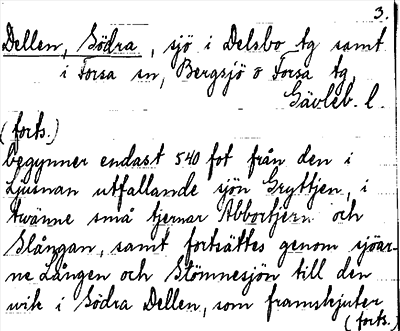 3.
Dellen, Södra, sjö i Delsbo tg samt
i Forsa sn, Bergsjö o Forsa tg,
Gävleb. l.
(forts.)
begynner endast 540 fot från den i
Ljusnan utfallande sjön Gryttjen, i
twänne små tjernar Abbortjern och
Slången, samt fortsättes genom sjöar-
ne Lången och Stömnesjön till den
wik i Södra Dellen, som framskjuter
(forts.)